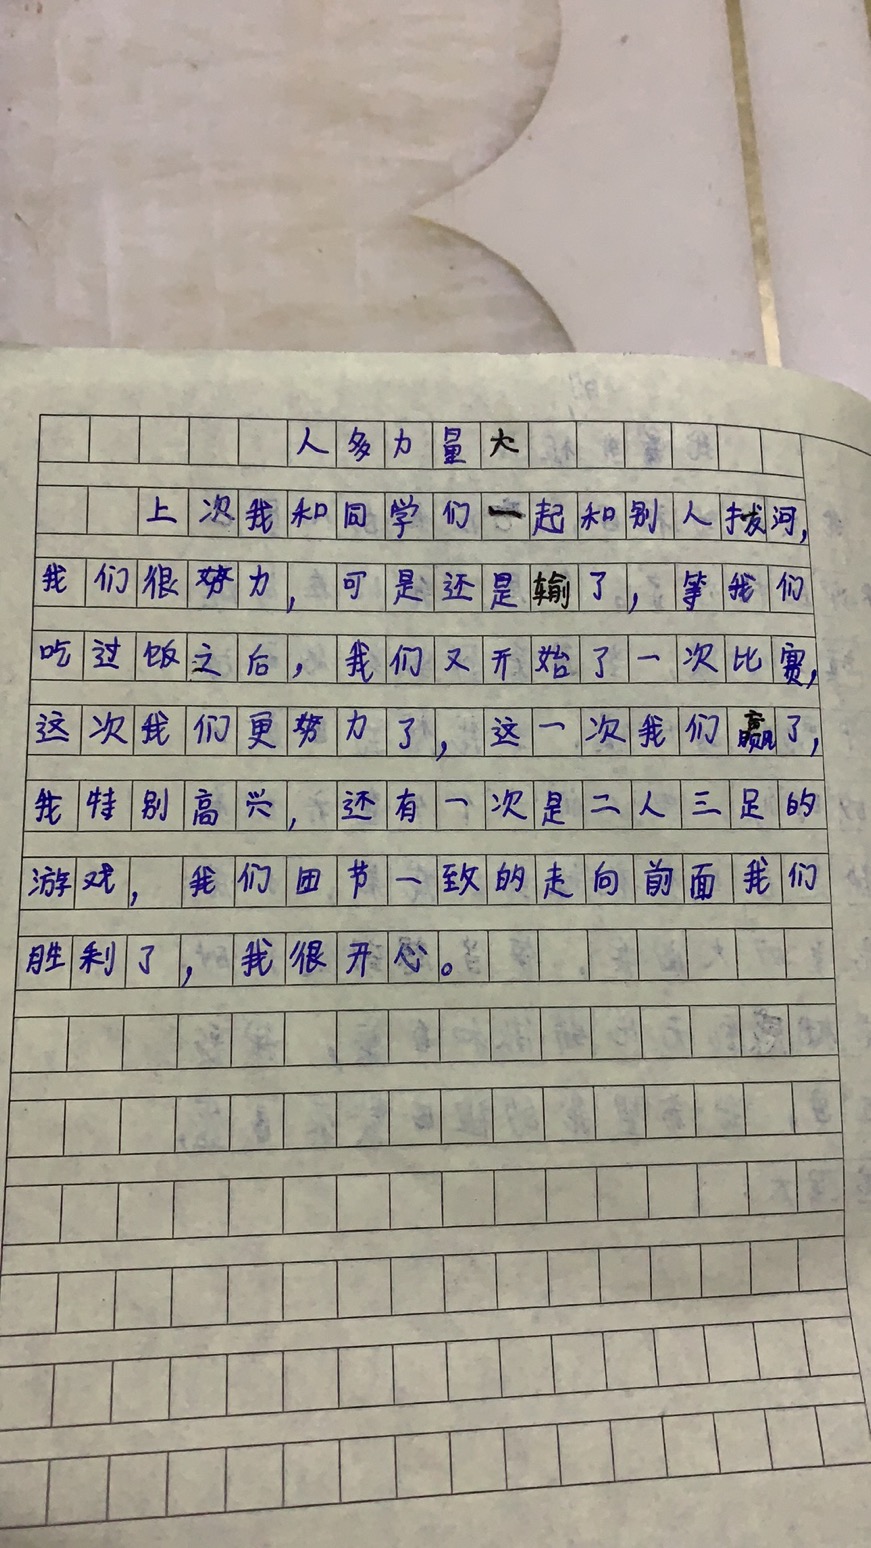 人多力量大
上次我和同学们一起和别人拔河,
我们很努力,可是还是输了,等我们
吃过饭之后,我们又开始了一次比赛,
这次我们更努力了,这一次我们赢了,
我特别高兴,还有一次是二人三足的
游戏,我们团节一致的走向前面我们
胜利了,我很开心。